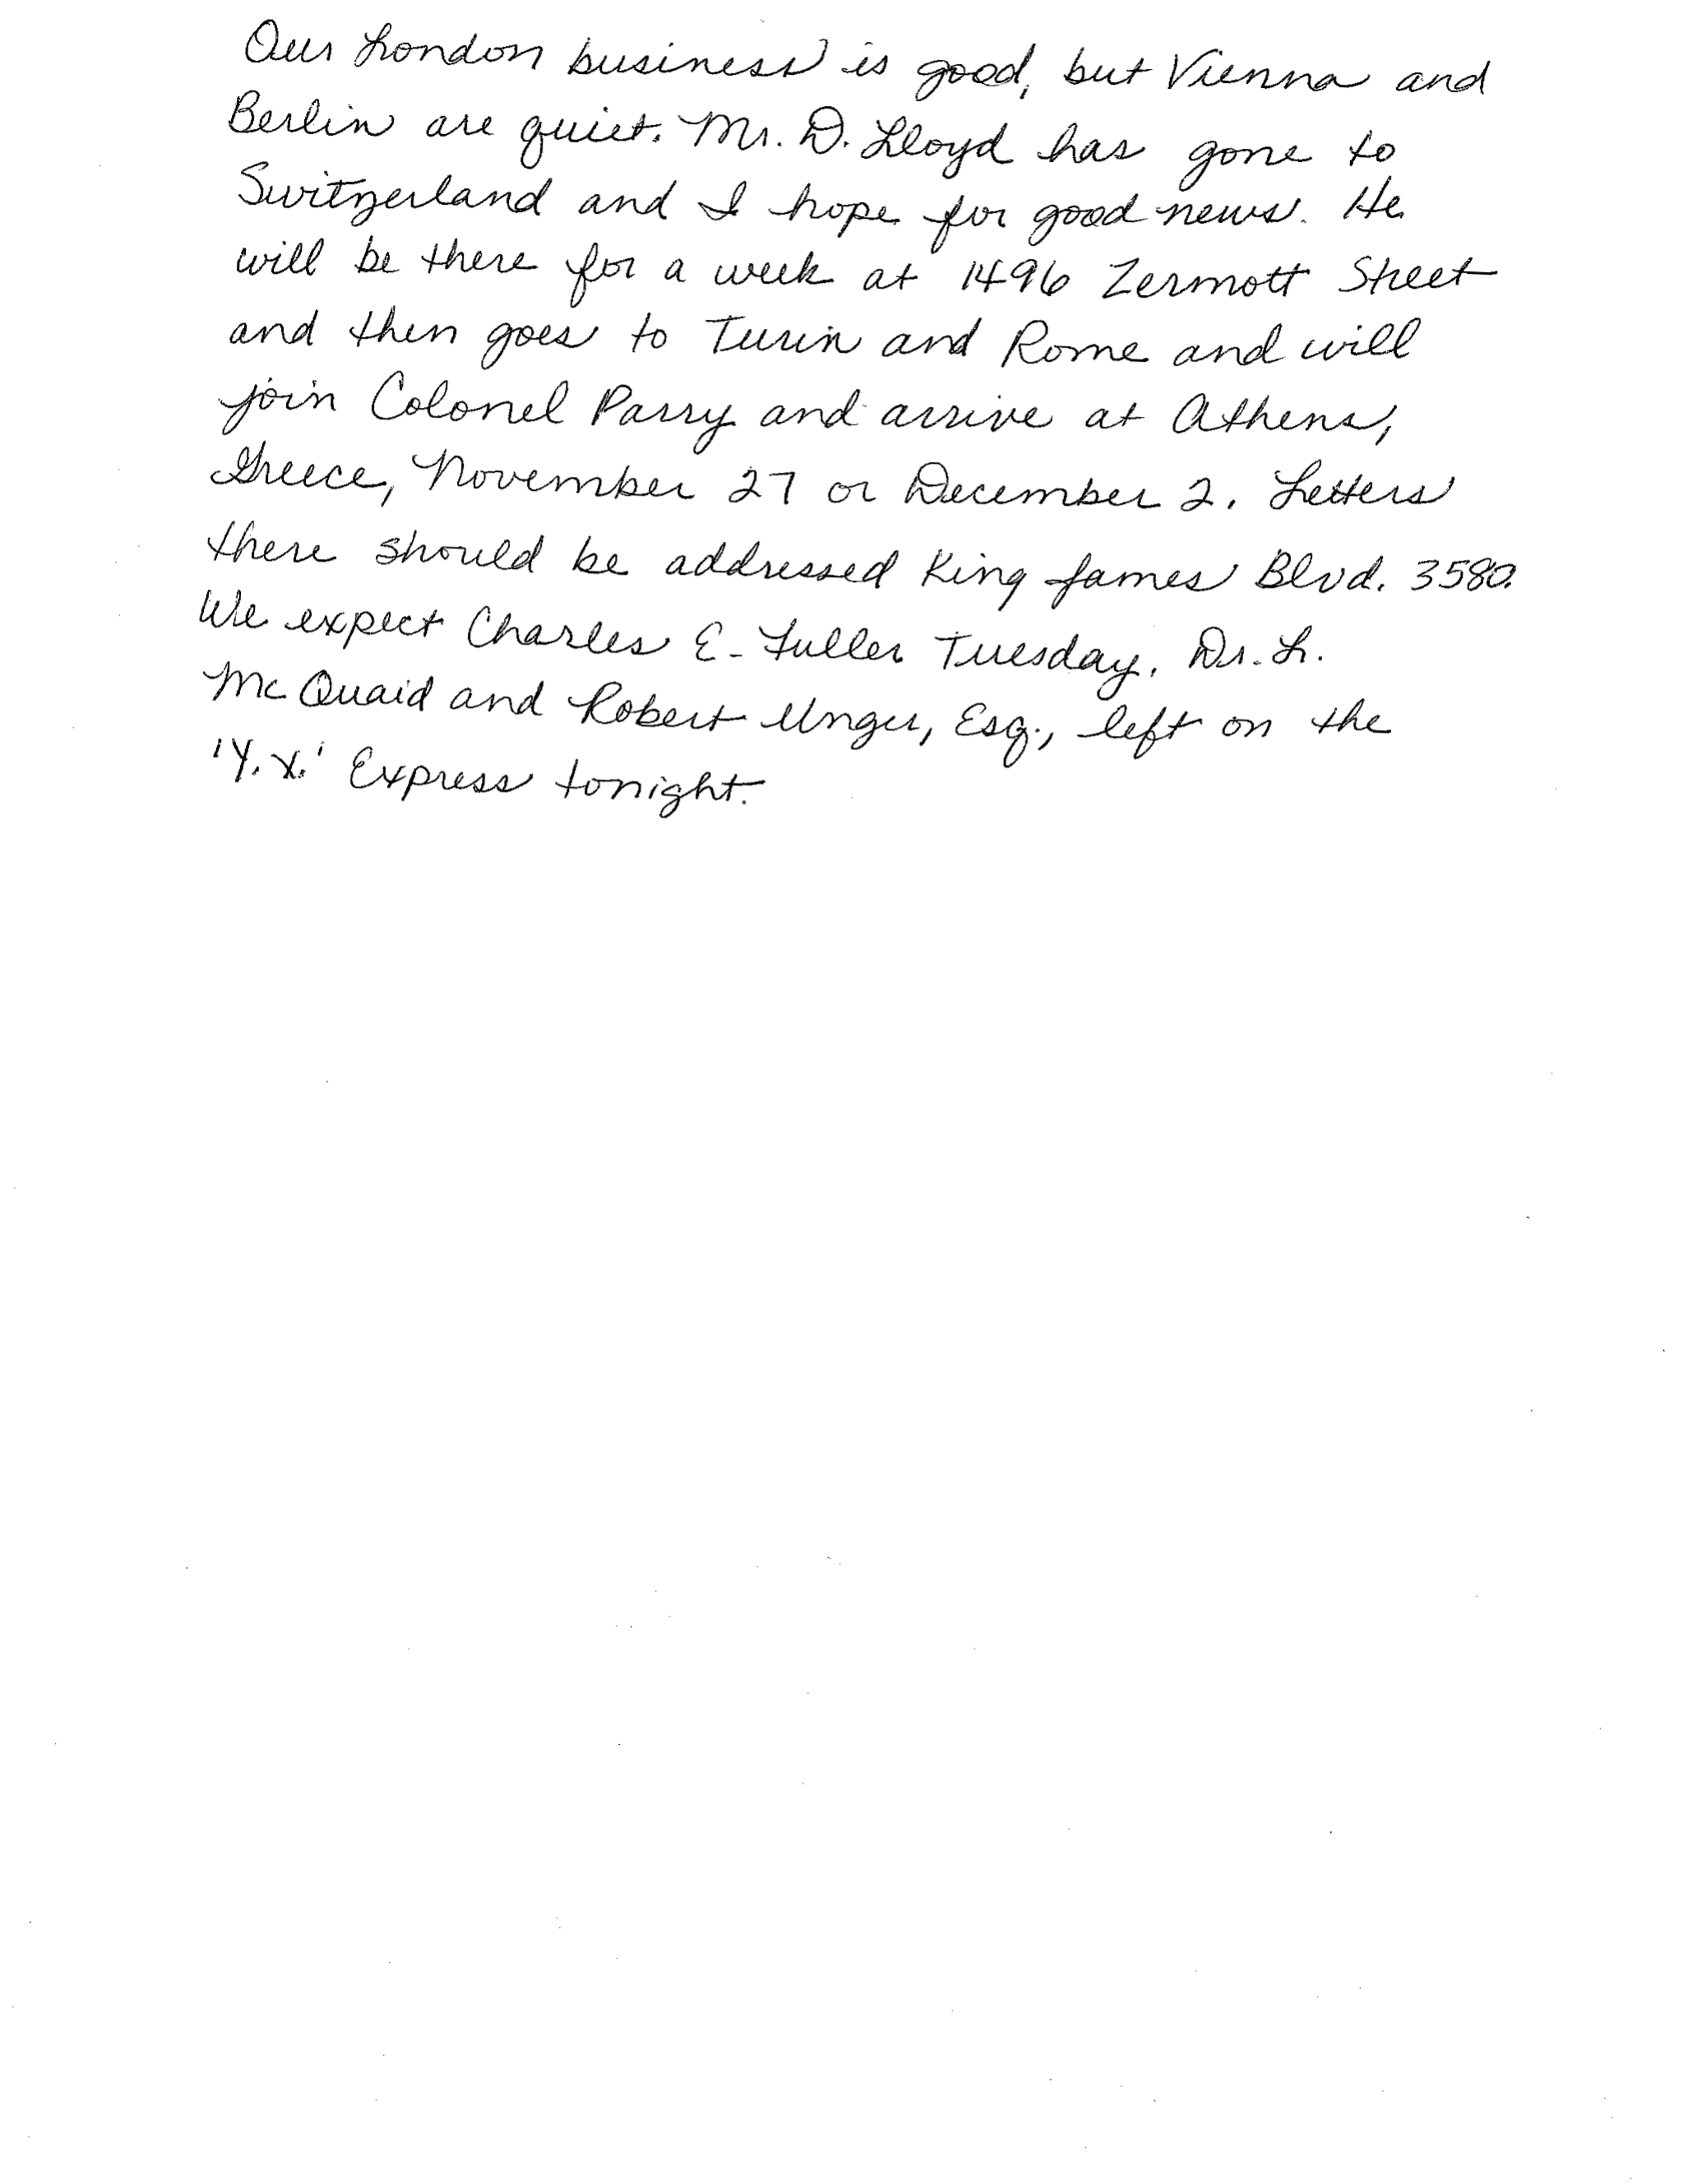 Our London business is good, but Vienna and
Berlin are quiet. Mr. D. Lloyd has gone to
Switzerland and I hope for good news. He
will be there for a week at 1496 Zermott Street
and then goes to Turin and Rome and will
join Colonel Parry and arrive at Athens,
Greece, November 27 or December 2. Letters
there should be addressed King James Blvd. 3580.
We expect Charles E. Fuller Tuesday. Dr. L.
McQuaid and Robert Unger, Esq., left on the
'Y.X.' Express tonight.